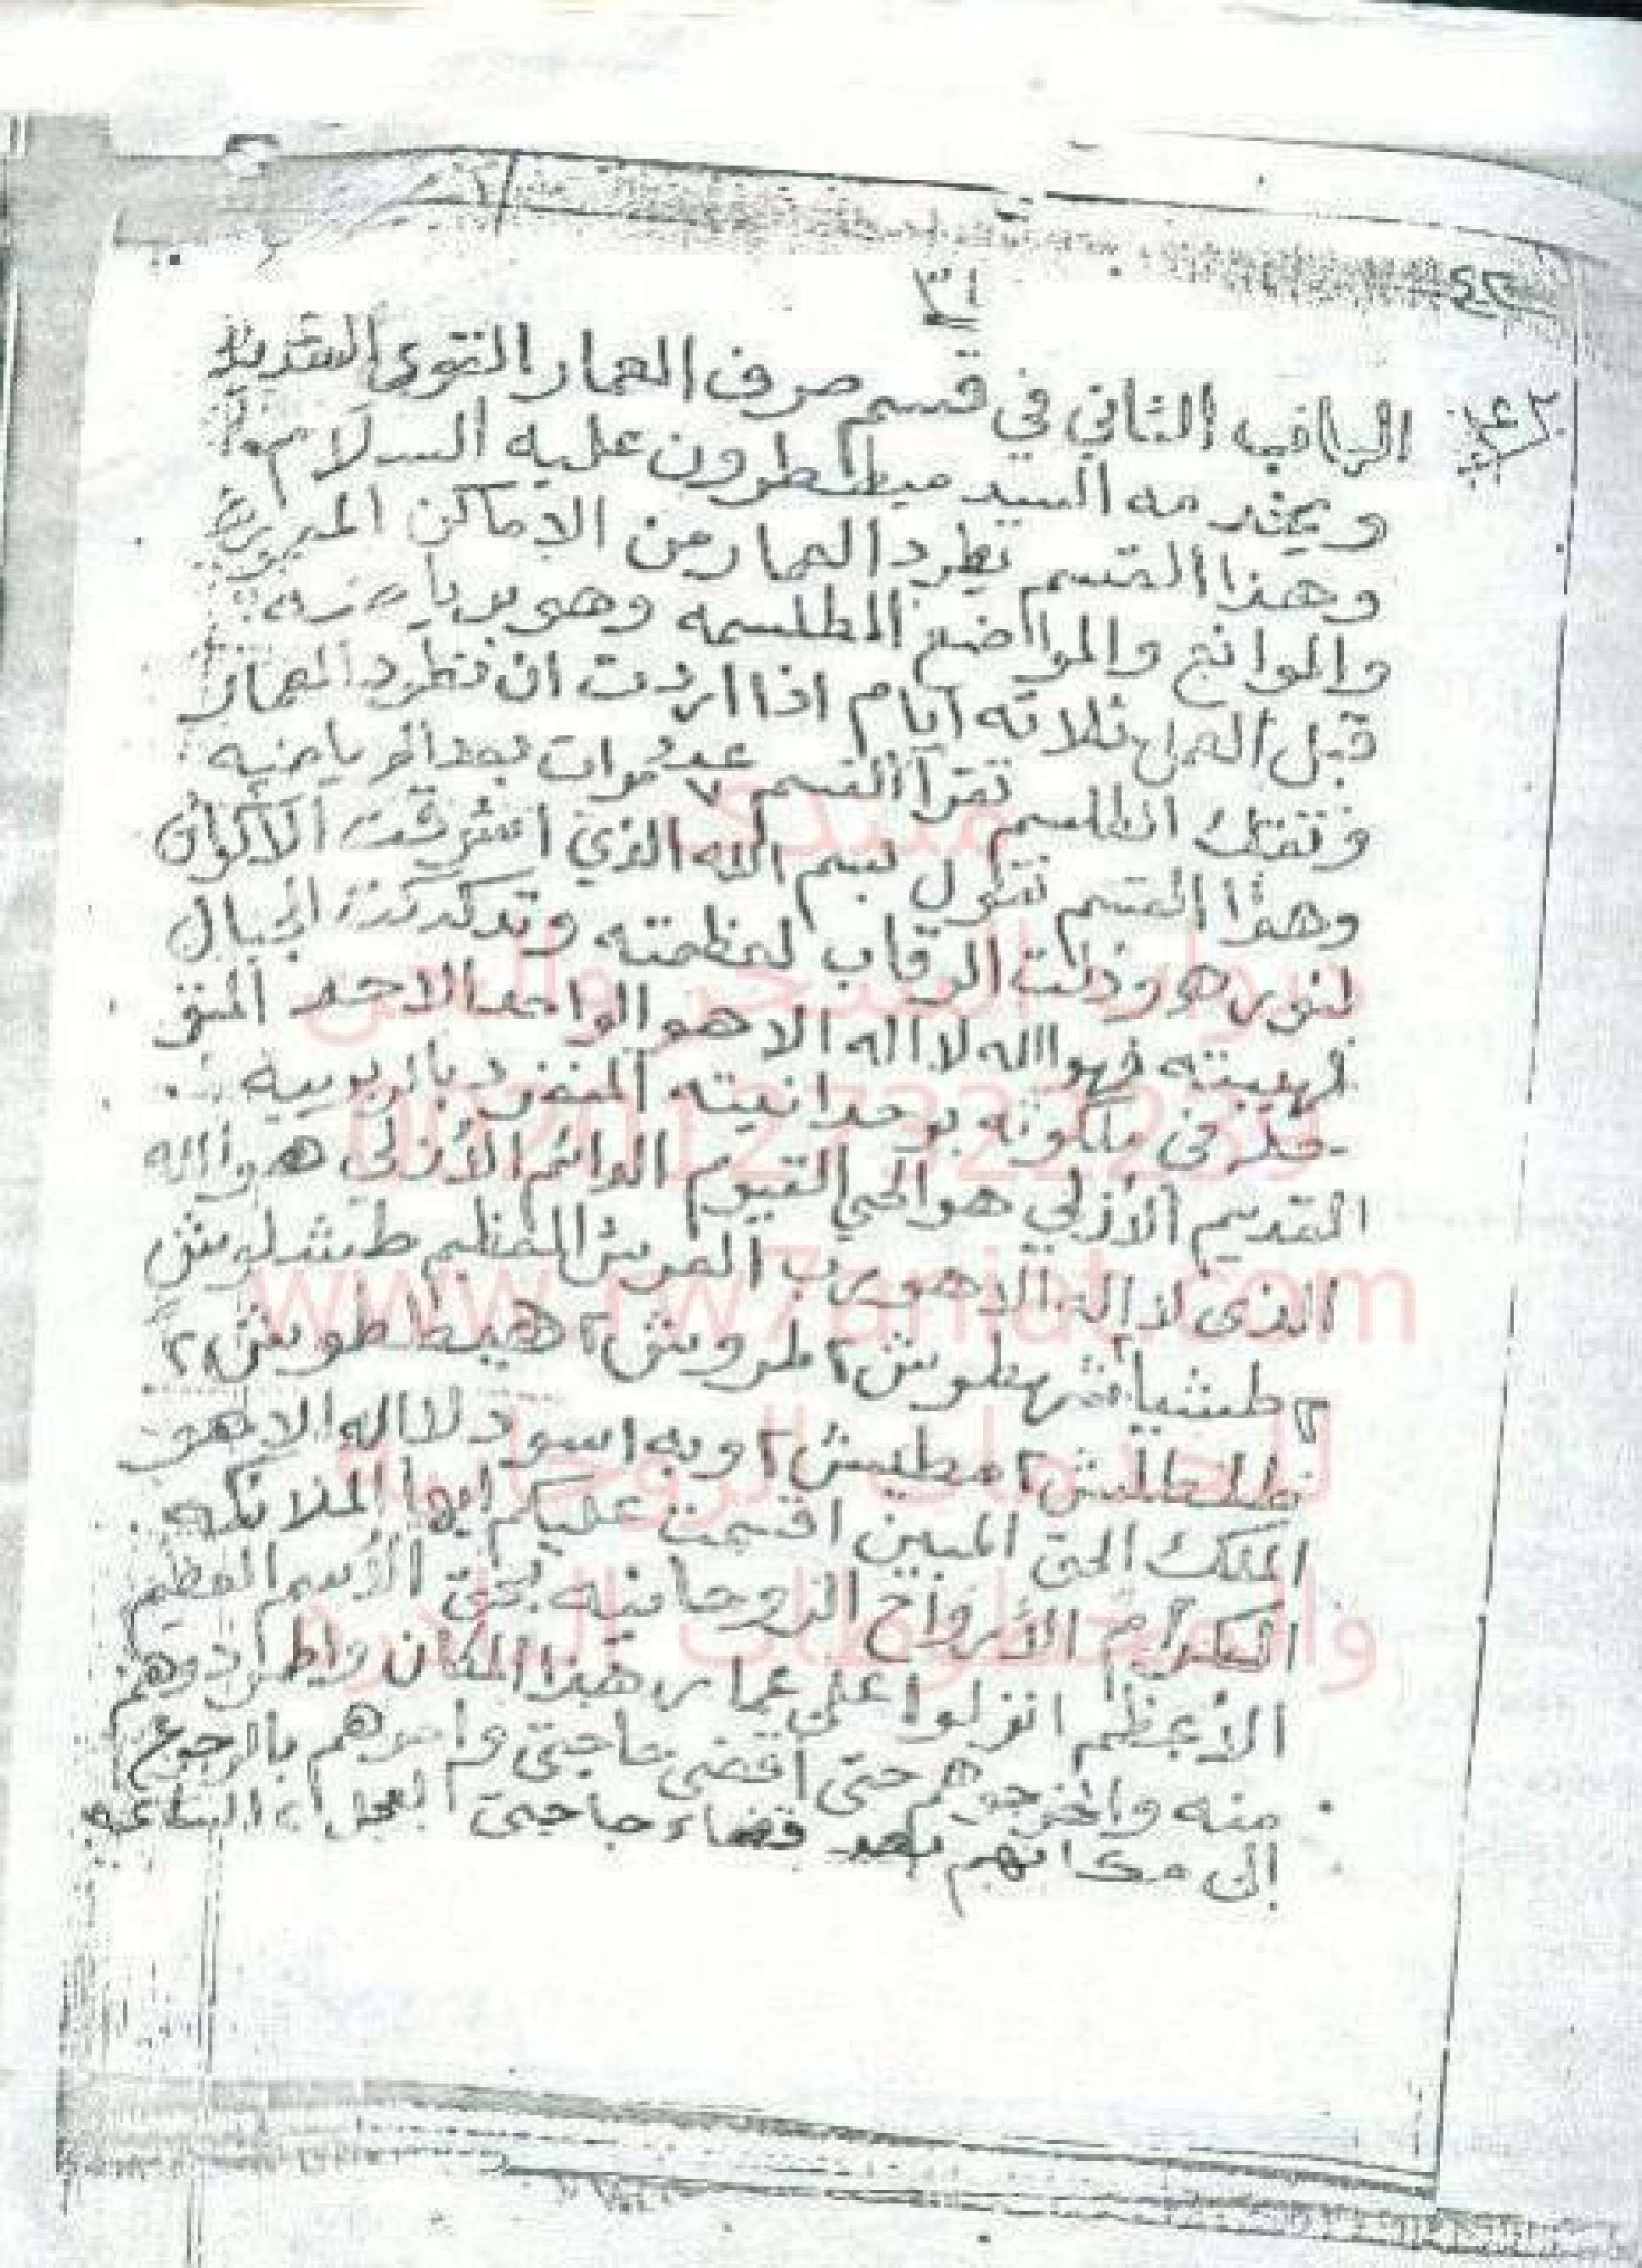 ٣١
٤٢
الباب الثاني في قسم صرف العمار القوى الشديد
ويخدمه السيد ميططرون عليه السلام
وهذا القسم تطرد العمار من الاماكن
والموانع والمواضع المطلسمه وهو
قبل العمل ثلاثه ايام اذا اردت ان تطرد العمار
وتفتك الطلسم تقرآ القسم ٧ عدد مرات بعد الرياضيه
وهذا القسم تقول بسم الله الذي اشرقت الأكوان
لنوره وذلت الرقاب لعظمته وتدكدكت الجبال
لهيبته فهو الله لا اله الا هو الواحد الاحد
في ملكوته بوحدانيته المنفرد بالربوبية
القديم الأزلي هو الحي القيوم الدائم الأزلى هو الله
الذى لا اله الا هو رب العرش العظيم طشلوش
٢ طشيا شهطوش ٢ طروش ٢ هيططوش ٢
٢ مطيش ٢ وبه اسود لا اله الا هو
الملك الحق المبين اقسمت عليكم ايها الملائكه
الكرام الأرواح الروحانيه بحق الأسم العظيم
الأعظم انزلوا على عمار هذا المكان واطردوهم
منه واخرجوهم حتى أقضى حاجتى وامرهم بالرجوع
الى مكانهم بعد قضاء حاجتى العجل ٢ الساعه
منتدى
002012 7322239
www.rw7aniat.com